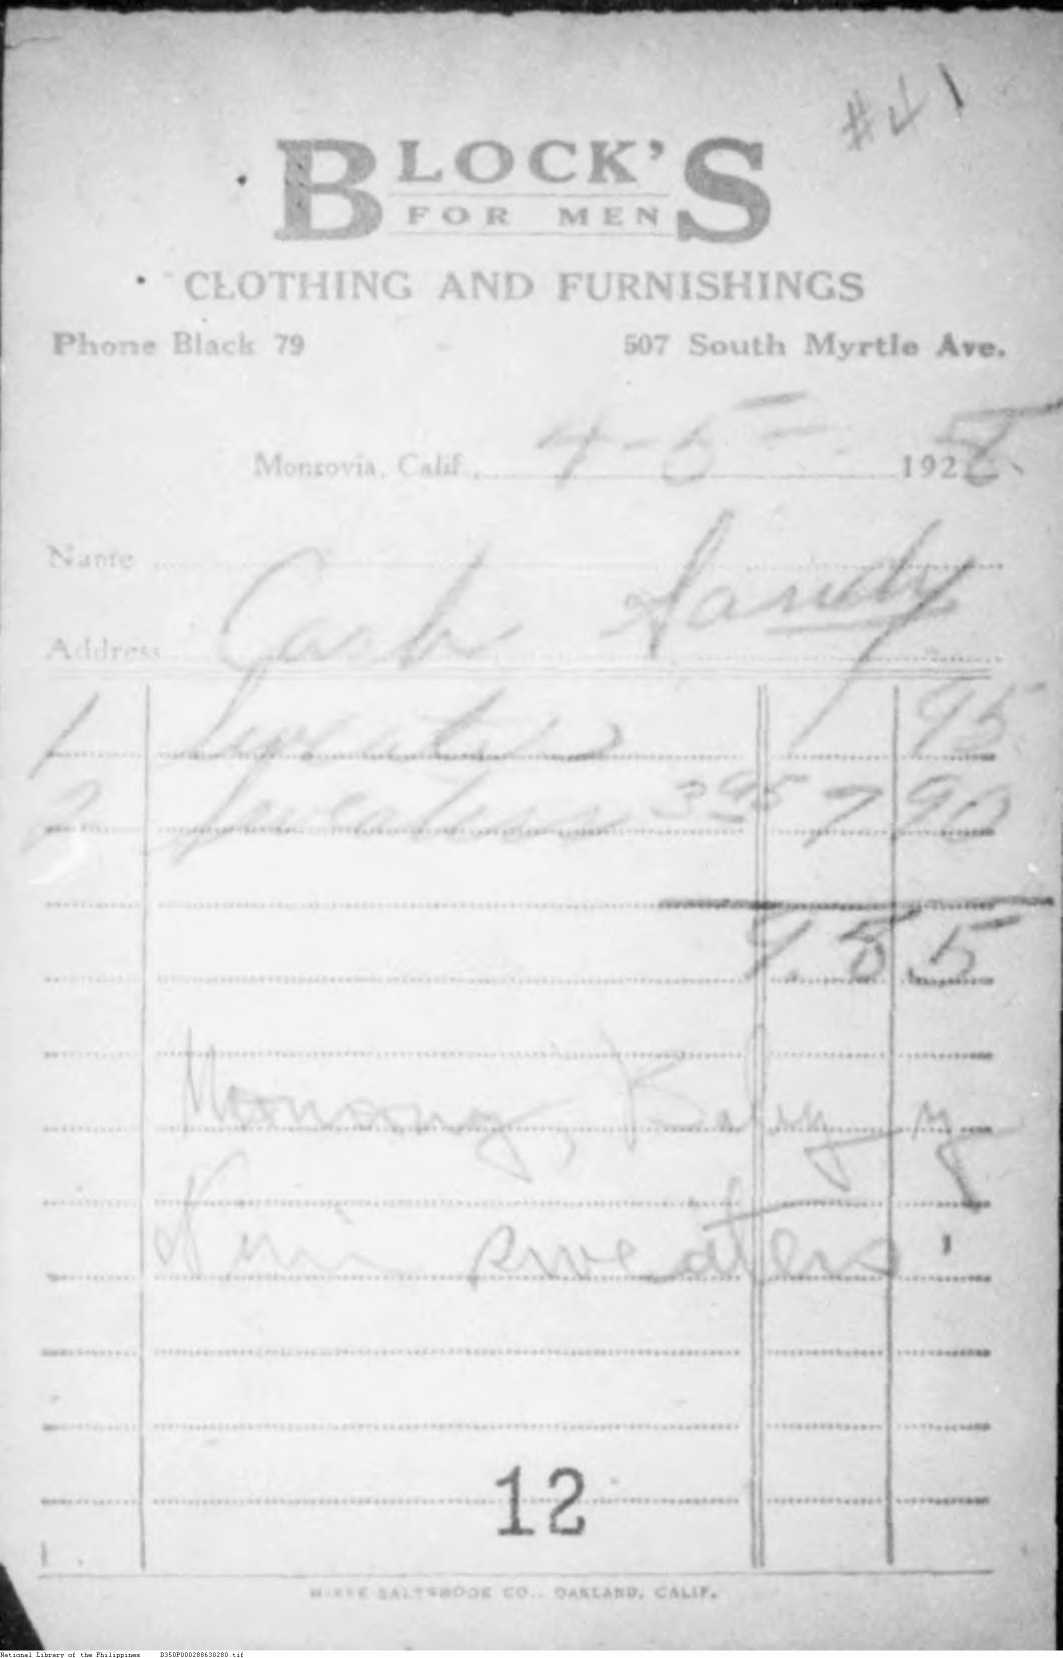 #41
BLOCK'S
FOR MEN
CLOTHING AND FURNISHINGS
Phone Black 79 507 South Myrtle Ave.
Monrovia, Calif., 4-5- 1928
Name
Cash Sandy
Address
1 Sweater 1 95
2 Sweaters 3 95 7 90
9.85
Nini sweaters
12
SALESBOOK CO., OAKLAND, CALIF.
National Library of the Philippines D350P000288630280.tif